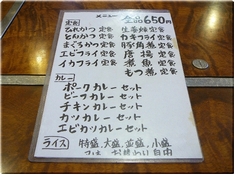 メニュー
定食 全品650円
ひれかつ定食 生姜焼定食
とんかつ定食 カキフライ定食
まぐろかつ定食 豚角煮定食
エビフライ定食 唐揚定食
イカフライ定食 煮魚定食
もつ煮定食
カレー
ポークカレーセット
ビーフカレーセット
チキンカレーセット
カツカレーセット
エビカツカレーセット
ライス 特盛、大盛、並盛、小盛
自由